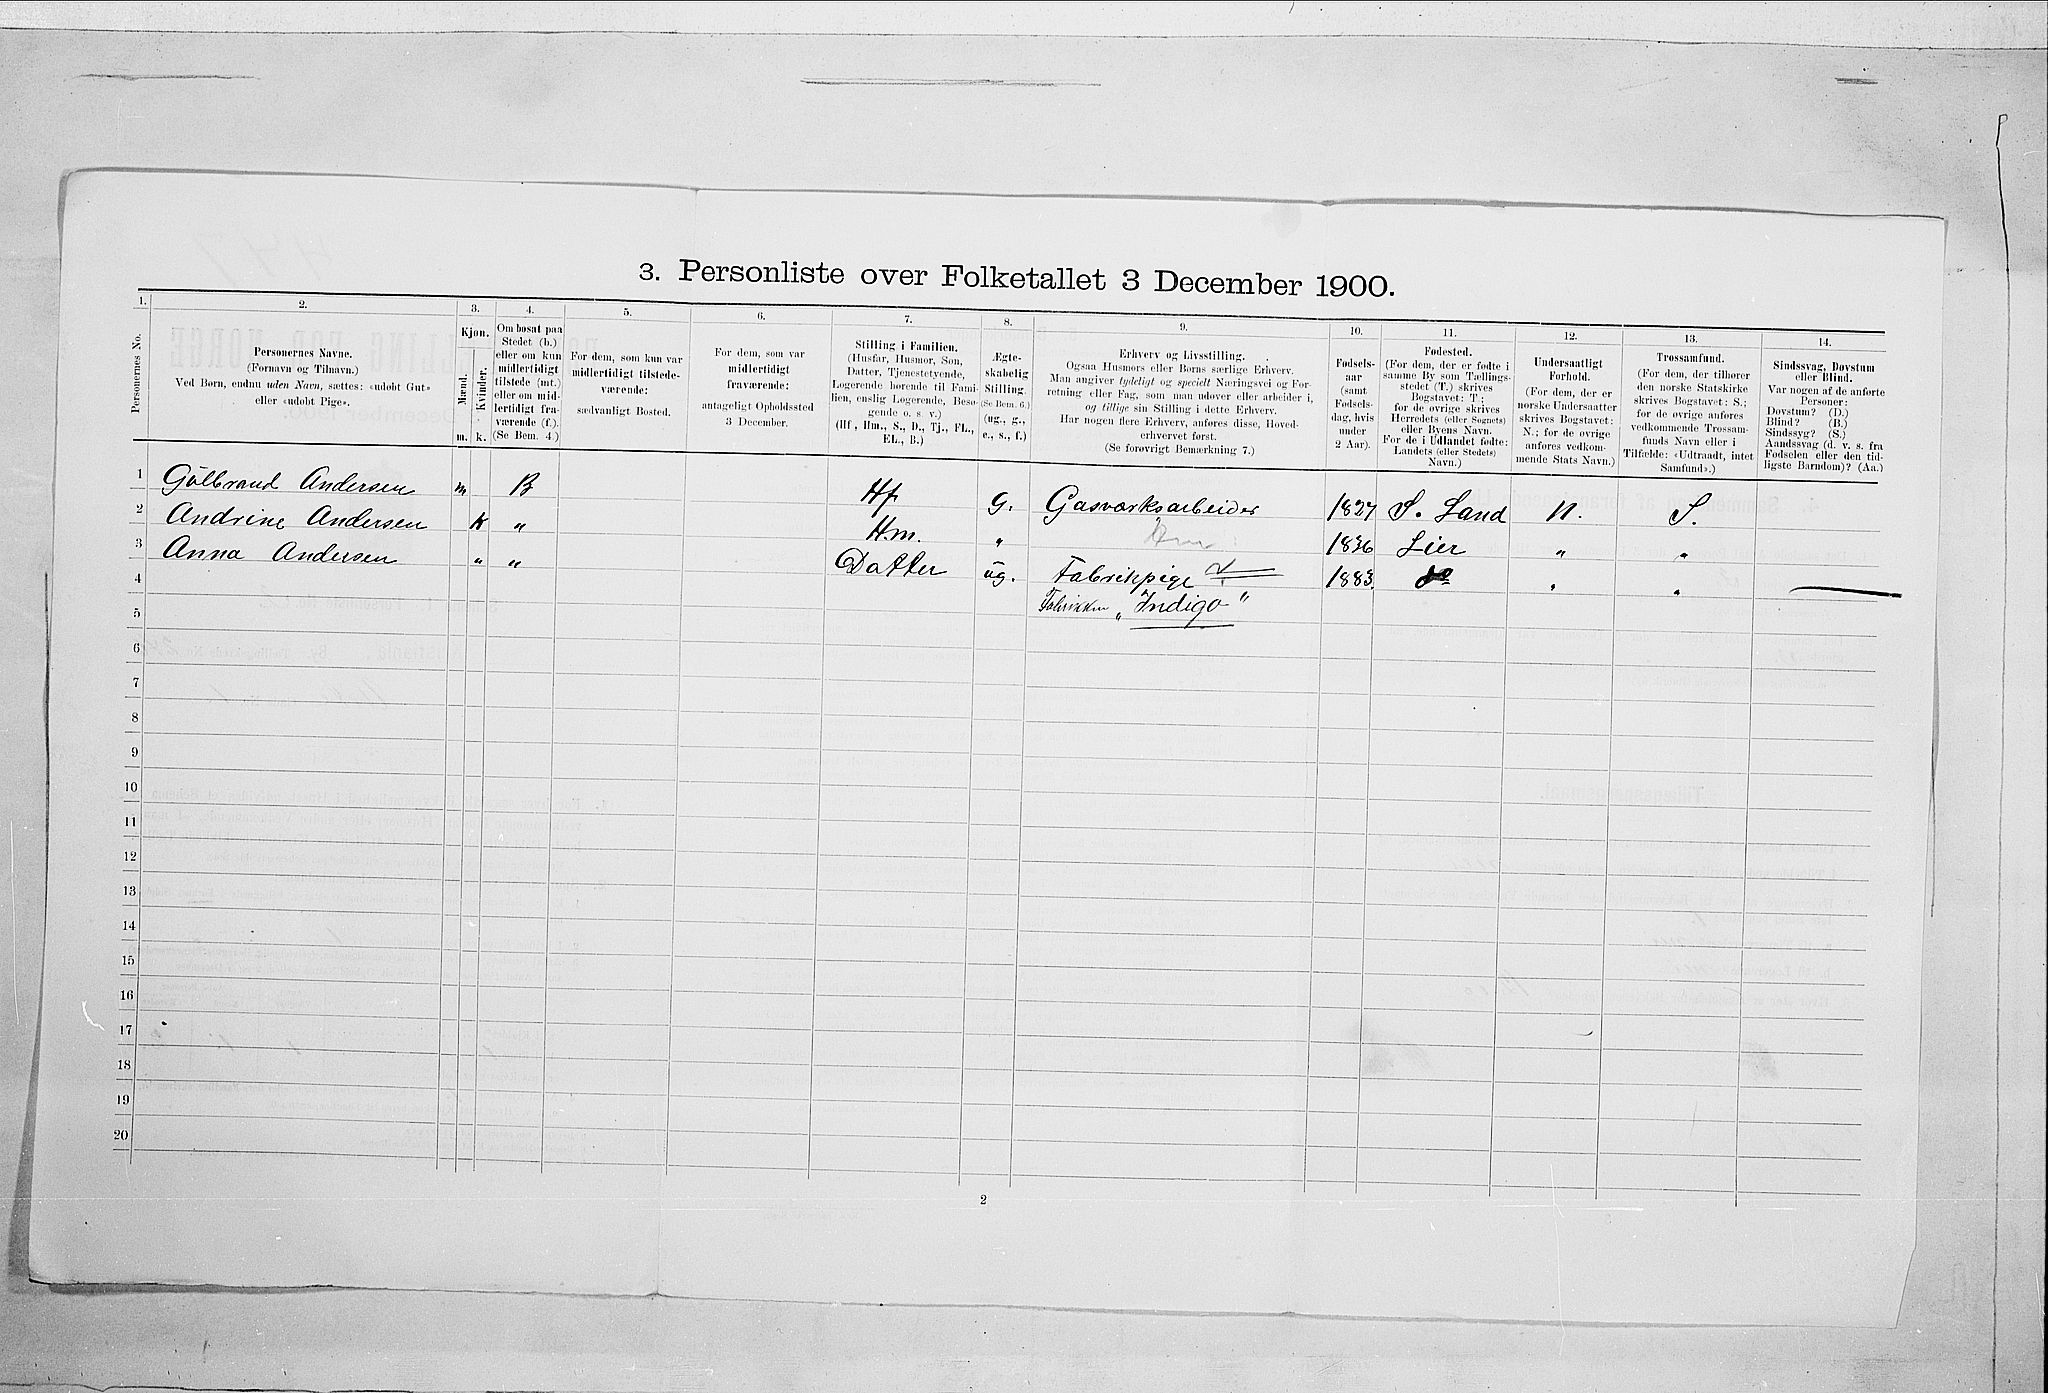 3. Personliste over Folketallet 3 December 1900.
1. 2. 3. 4. 5. 6. 7. 8. 9. 10. 11. 12. 13. 14.
Personernes No.
Personernes Navne.
(Fornavn og Tilnavn.)
Ved Børn, endnu uden Navn, sættes: «udøbt Gut»
eller «udøbt Pige».
Kjøn.
Mænd.
Kvinder.
m. k.
Om bosat paa
Stedet (b.)
eller om kun
midlertidigt
tilstede (mt.)
eller om mid-
lertidigt fra-
værende (f.).
(Se Bem. 4.)
For dem, som kun var
midlertidigt tilstede-
værende:
sædvanligt Bosted.
For dem, som var
midlertidigt
fraværende:
antageligt Opholdssted
3 December.
Stilling i Familien.
(Husfar, Husmor, Søn,
Datter, Tjenestetyende,
Logerende hørende til Fami-
lien, enslig Logerende, Besø-
gende o. s. v.)
(Hf., Hm., S., D., Tj., FL.,
EL., B.)
Ægte-
skabelig
Stilling.
(Se Bem. 6.)
(ug., g.,
e., s., f.)
Erhverv og Livsstilling.
Ogsaa Husmors eller Børns særlige Erhverv.
Man angiver tydeligt og specielt Næringsvei og For-
retning eller Fag, som man udøver eller arbeider i,
og tillige sin Stilling i dette Erhverv.
Har nogen flere Erhverv, anføres disse, Hoved-
erhvervet først.
(Se forøvrigt Bemærkning 7.)
Fødsels-
aar
(samt
Fødsels-
dag, hvis
under
2 Aar).
Fødested.
(For dem, der er fødte i
samme By som Tællings-
stedet (T.) skrives
Bogstavet: T;
for de øvrige skrives
Herredets (eller Sognets)
eller Byens Navn.
For de i Udlandet fødte:
Landets (eller Stedets)
Navn.)
Undersaatligt
Forhold.
(For dem, der er
norske Undersaatter
skrives Bogstavet:
N.; for de øvrige
anføres vedkom-
mende Stats Navn.)
Trossamfund.
(For dem, der tilhører
den norske Statskirke
skrives Bogstavet: S.;
for de øvrige anføres
vedkommende Trossam-
funds Navn eller i
Tilfælde: «Udtraadt, intet
Samfund».)
Sindssvag, Døvstum
eller Blind.
Var nogen af de anførte
Personer:
Døvstum? (D.)
Blind? (B.)
Sindssyg? (S.)
Aandssvag (d. v. s. fra
Fødselen eller den tid-
ligste Barndom)? (Aa.)
1 Gülbrand Andersen m B Hf g. Gasværksarbeider 1827 S. Land N. S.
2 Andrine Andersen K „ H.m. „ 1836 Lier „ „
3 Anna Andersen „ „ Datter üg. Fabrikpige 1883 do „ „
4 Fabrikken „Indigo"
5
6
7
8
9
10
11
12
13
14
15
16
17
18
19
20
2